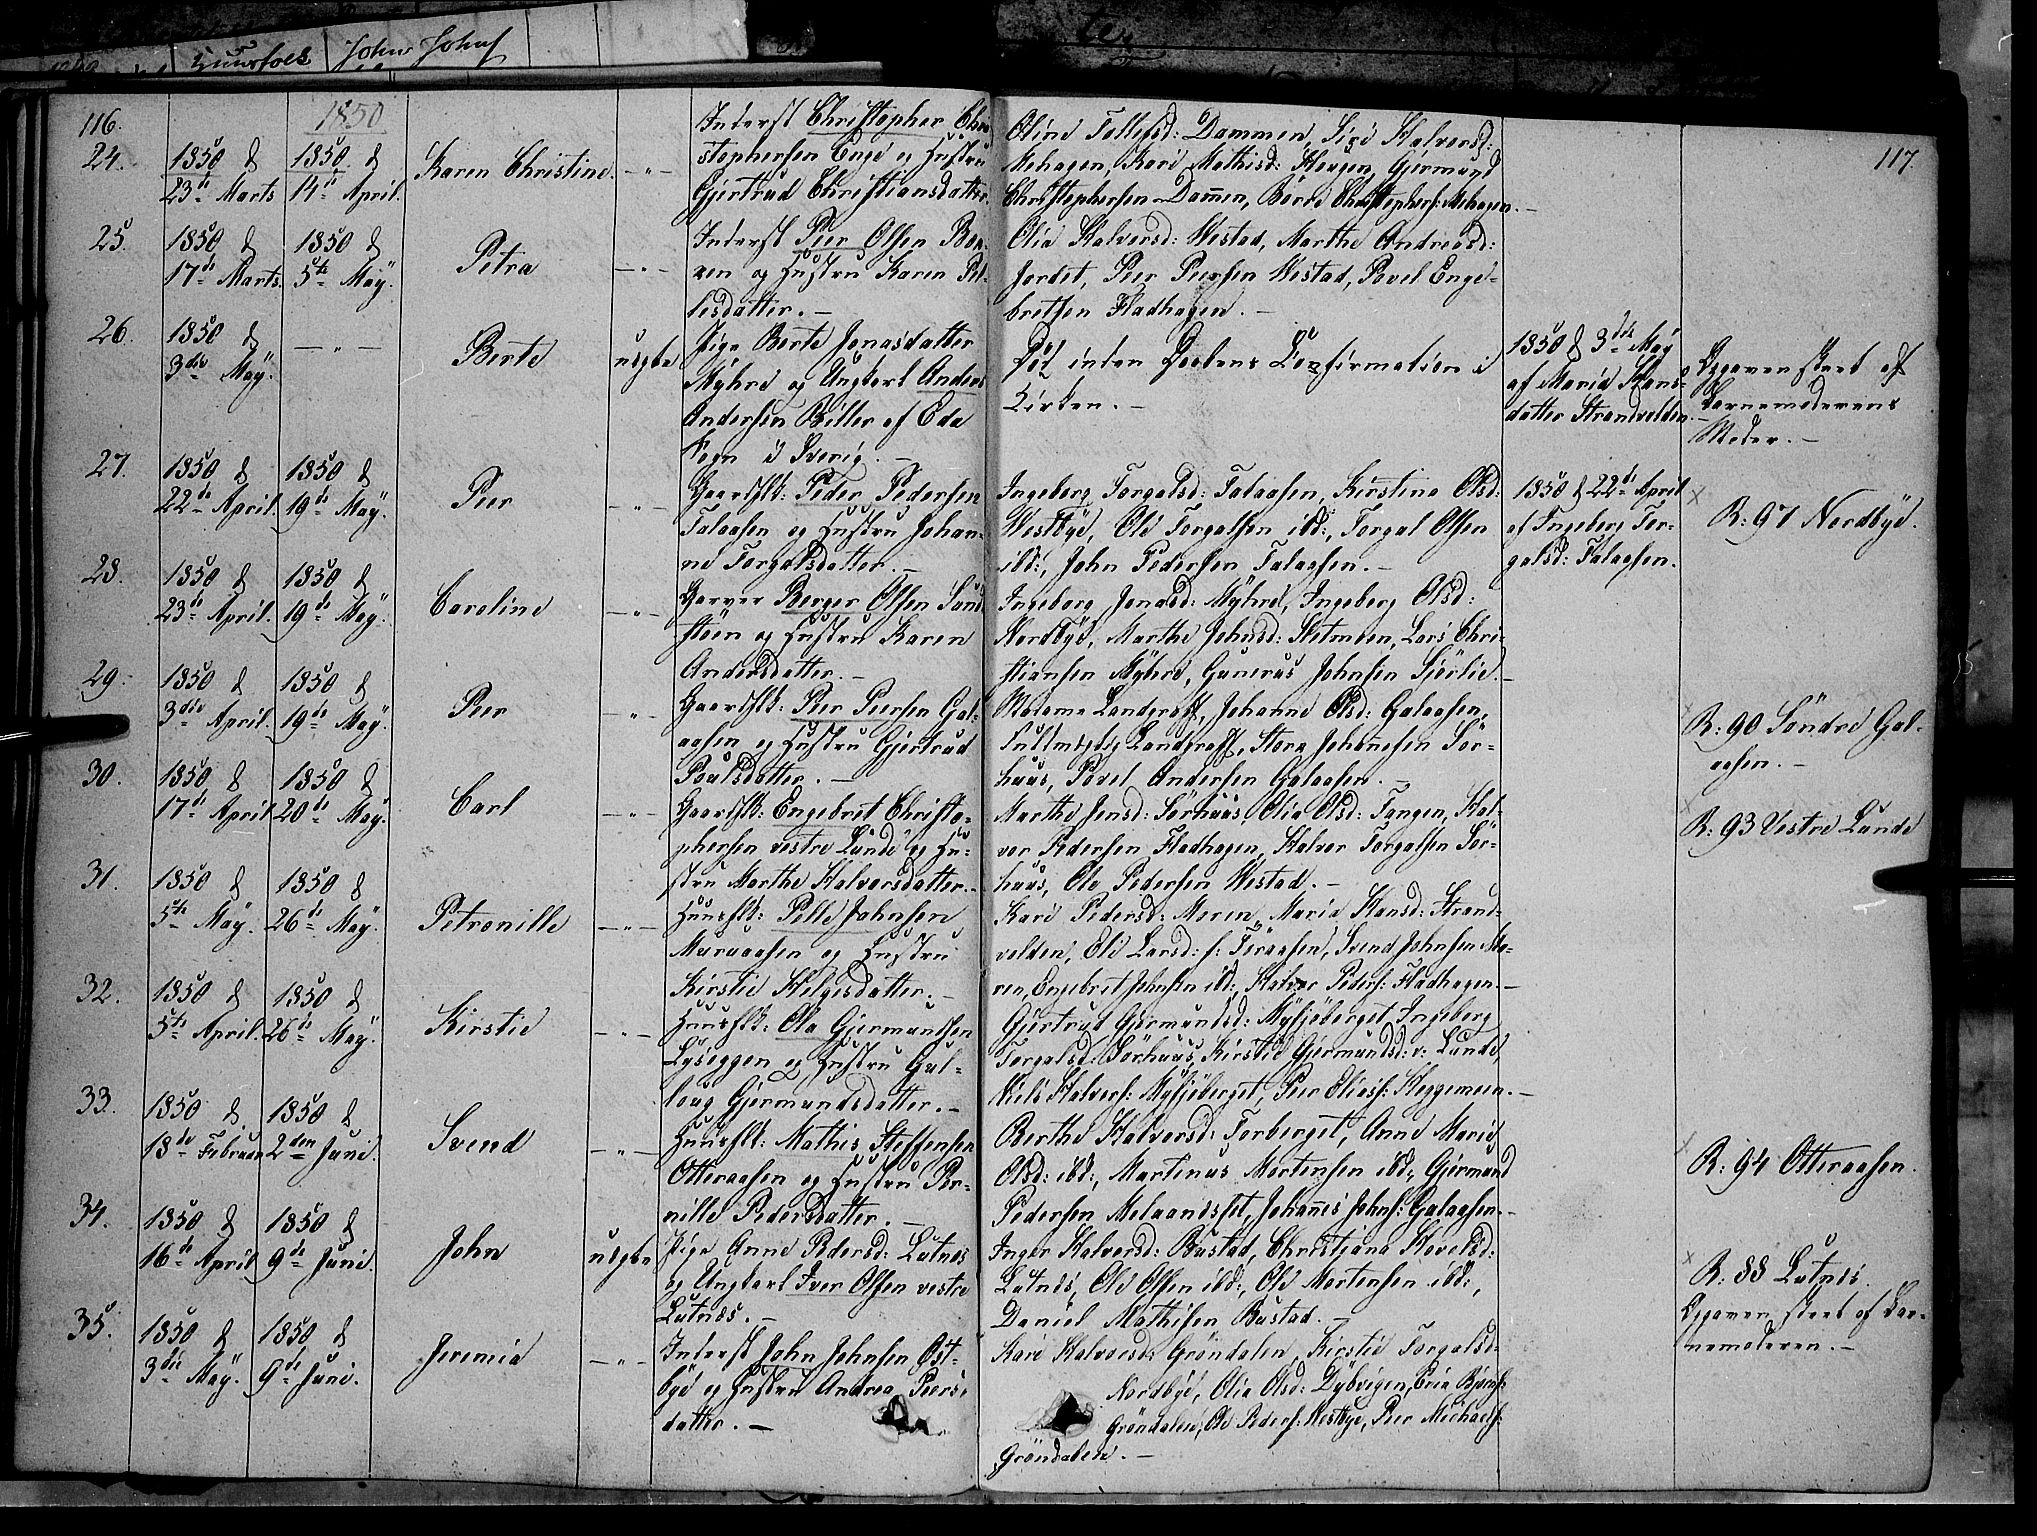 Huusfolk John Johns
116.
1850
117.
24.
1850 d
23de Marts
1850 d
14de April.
Karen Christine.
— " —
Inderst Christopher Chri-
stophersen Enge og Hustru
Gjertrud Christiansdatter.
Oline Tollefsd: Dammen, Siri Halvorsd:
Mehagen, Kari Mathisd: Haugen, Gjermund
Christophersen Dammen, Börre Christophers: Mehagen. —
25.
1850 d
17de Marts.
1850 d
5te Maÿ.
Petra
— " —
Inderst Peer Olsen
og Hustru Karen
datter. —
Olia Halvorsd: Westad, Marthe Andreasd:
Jordet, Peer Peersen Westad, Povel Enge-
bretsen Fladhagen. —
26.
1850 d
3die Maÿ.
— " —
Berte
uægte
Pige Berte Jonasdatter
Mÿhre og Ungkarl Anders
Andersen Biller af Eda
Sogn i Sverig. —
Död inden Daabens Confirmation i
Kirken. —
1850 d 3die Maÿ
af Maria Hans-
datter Strandvolden
Opgaven skeet af
Barnemoderens
Moder. —
27.
1850 d
22de April.
1850 d
19de Maÿ.
Peer
— " —
Gaardfk: Peder Pedersen
Galaasen og Hustru Johan-
ne Torgalsdatter. —
Ingeborg Torgalsd: Galaasen, Kirstine Olsd:
Westbÿe, Ole Torgalsen ibd:, Torgal Olsen
ibd:, John Pedersen Galaasen. —
1850 d 22de April
af Ingeborg Tor-
galsd: Galaasen.
R: 97 Nordbÿe.
28.
1850 d
23de April.
1850 d
19de Maÿ.
Caroline
— " —
Garver Berger Olsen
og Hustru Karen
Andersdatter. —
Ingeborg Jonasd: Mÿhre, Ingeborg Olsd:
Nordbÿe, Marthe Johnsd: Lars Chri-
stiansen Mÿhre, Gunerus Johnsen Sjörlie. —
29.
1850 d
3die April.
1850 d
19de Maÿ.
Peer
— " —
Gaardfk: Peer Peersen Gal-
aasen og Hustru Gjertrud
Poulsdatter. —
Madame Landgraff, Johanne Olsd: Galaasen,
Fuldmægtig Landgraff, Johannesen Sör-
huus, Povel Andersen Galaasen. —
R: 90 Söndre Gal-
aasen. —
30.
1850 d
17de April
1850 d
20de Maÿ.
Carl
— " —
Gaardfk: Engebret Christo-
phersen vestre Lunde og Hu-
stru Marthe Halvorsdatter. —
Marthe Jensd: Sörhuus, Olia Olsd: Tangen, Hal-
vor Pedersen Fladhagen, Halvor Torgalsen Sör-
huus, Ole Pedersen Westad. —
R: 93 Vestre Lunde
31.
1850 d
5te Maÿ.
1850 d
26de Maÿ.
Petronille
— " —
Huusfk: Pelle Johnsen
og Hustru
Kirstie Helgesdatter. —
Kari Pedersd: Moren, Maria Hansd: Strand-
volden, Eli Larsd: Svend Johnsen Mo-
ren, Engebret Johnsen ibd:, Halvor Peders: Fladhagen. —
32.
1850 d
5te April.
1850 d
26de Maÿ.
Kirstie
— " —
Huusfk: Ola Gjermundsen
Lÿseggen og Hustru Gul-
loug Gjermundsdatter. —
Gjertrud Gjermundsd: Mÿsjöberget, Ingeborg
Torgalsd: Sörhuus, Kirstie Gjermundsd: v: Lunde
Niels Halvors: Mÿsjöberget, Peer Elias: Heggemoen. —
33.
1850 d
18de Februar
1850 d
2den Juni.
Svend
— " —
Huusfk: Mathis Steffensen
Otteraasen og Hustru Per-
nille Pedersdatter. —
Berthe Halvorsd: Torberget, Anne Marie
Olsd: ibd:, Martinus Mortensen ibd:, Gjermund
Pedersen Melaandset, Johannes Johns: Galaasen. —
R: 94 Otteraasen.
34.
1850 d
16de April
1850 d
9de Juni.
John
uægte
Pige Anne Pedersd: Lutnes
og Ungkarl Iver Olsen vestre
Lutnes. —
Inger Halvorsd: Bustad, Christjana
Lutnes, Ole Olsen ibd:, Ole Mortensen ibd:,
Daniel Mathisen Bustad. —
R: 88 Lutnes.
Opgaven skeet af Bar-
nemoderen. —
35.
1850 d
3die Maÿ.
1850 d
9de Juni.
Jeremia
— " —
Inderst John Johnsen Öst-
bÿe og Hustru Andrea Peers-
datter. —
Kari Halvorsd: Gröndalen, Kirstie Torgalsd:
Nordbÿe, Olia Olsd: Dÿbvigen, Björns:
Gröndalen, Ole Peders: Westbÿe, Peer Michaels:
Gröndalen. —